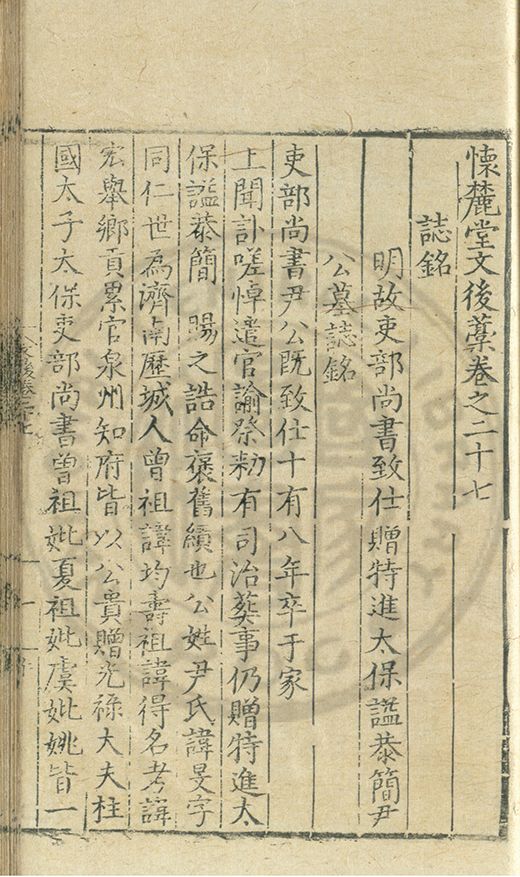 懷麓堂文後藁卷之二十七
誌銘
明故吏部尚書致仕贈特進太保謚恭簡尹
公墓誌銘
吏部尚書尹公既致仕十有八年卒于家
上聞訃嗟悼遣官諭祭勑有司治葬事仍贈特進太
保謚恭簡賜之誥命褒舊績也公姓尹氏諱旻字
同仁世為濟南歷城人曾祖諱均壽祖諱得名考諱
宏舉鄉貢累官泉州知府皆以公貴贈光祿大夫柱
國太子太保吏部尚書曾祖妣夏祖妣虞妣姚皆一